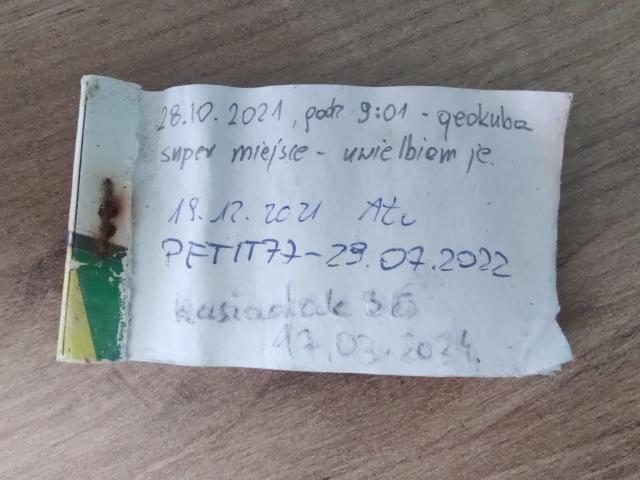 28.10.2021, godz. 9:01 - geokuba
super miejsce - uwielbiam je.
19.12.2021
PETIT77-29.07.2022
17.03.2024.